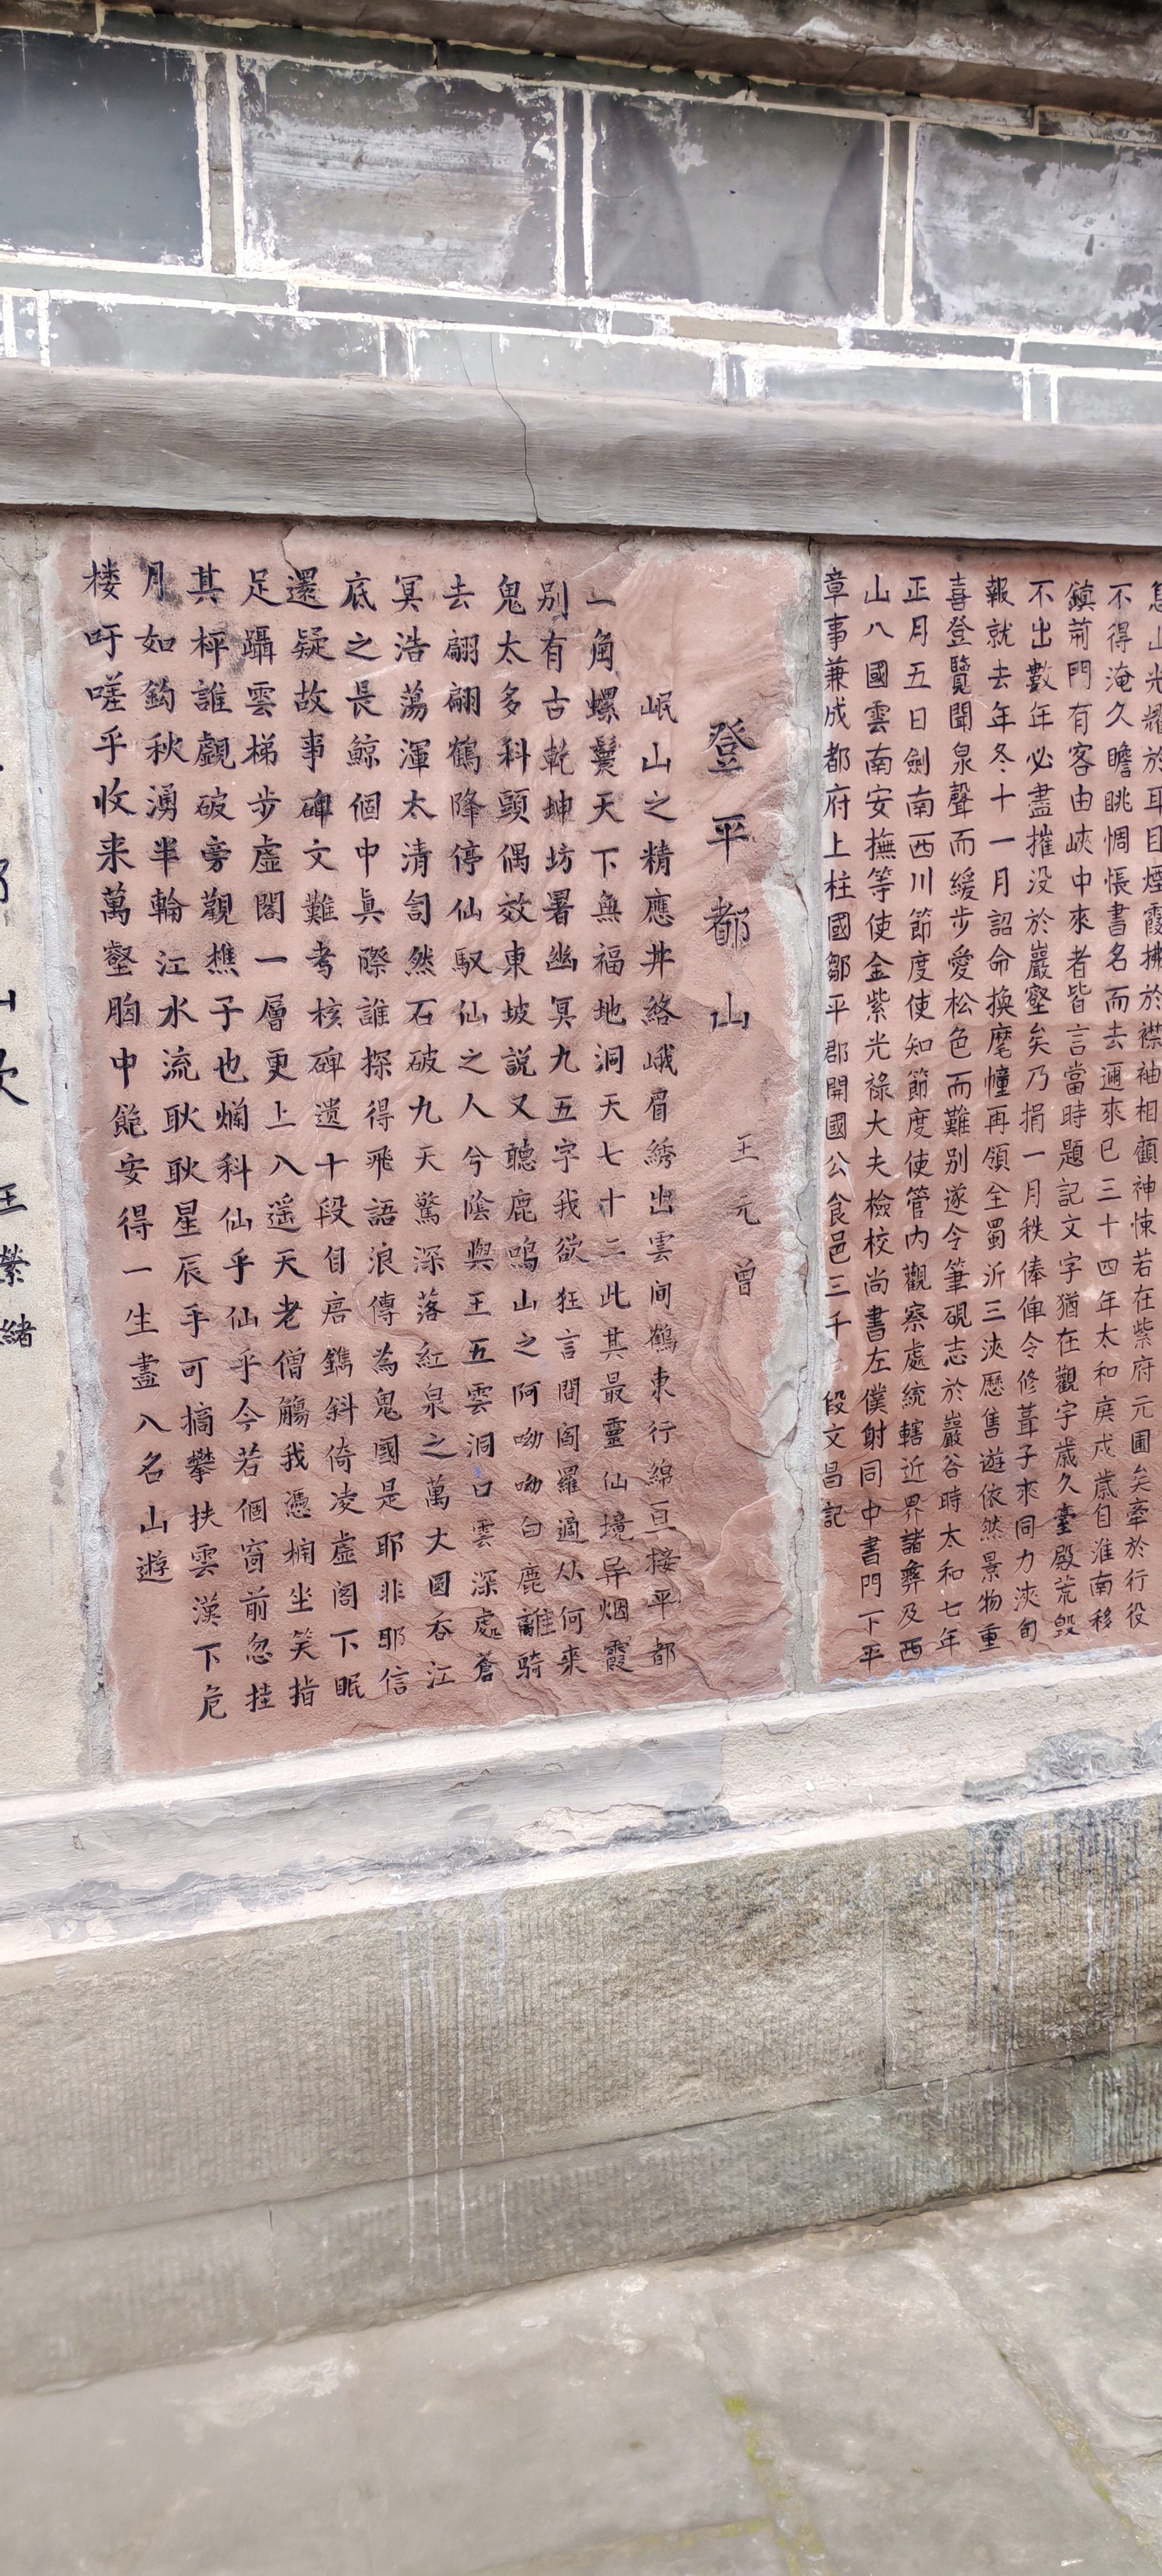 山光耀於耳目煙霞拂於襟袖相顧神悚若在紫府元圃矣牽於行役
不得淹久瞻眺惆悵書名而去邇來已三十四年太和庚戌歲自淮南移
鎮荊門有客由峽中來者皆言當時題記文字猶在觀宇歲久臺殿荒毁
不出數年必盡摧没於巖壑矣乃捐一月秩俸俾令修葺子來同力浹旬
報就去年冬十一月詔命換麾幢再領全蜀沂三浹歷售遊依然景物重
喜登覽聞泉聲而緩步愛松色而難别遂令筆硯志於巖谷時太和七年
正月五日劍南西川節度使知節度使管内觀察處統轄近界諸彝及西
山八國雲南安撫等使金紫光祿大夫檢校尚書左僕射同中書門下平
章事兼成都府上柱國鄒平郡開國公食邑三千 段文昌記
登平都山
王元曾
岷山之精應井絡峨眉綉出雲间鶴東行綿亘接平都
一角螺鬟天下無福地洞天七十二此其最靈仙境异烟霞
别有古乾坤坊署幽冥九五字我欲狂言問阎羅適从何来
鬼太多科頭偶效東坡説又聽鹿鳴山之阿呦呦白鹿離騎
去翩翩鶴降停仙馭仙之人兮陰與王五雲洞口雲深處蒼
冥浩蕩渾太清訇然石破九天驚深落紅泉之萬丈圓吞江
底之長鲸個中真際誰探得飛語浪傳為鬼國是耶非耶信
還疑故事碑文難考核碑遗十段自唐鐫斜倚凌虚阁下眠
足躡雲梯步虚閣一層更上八遥天老僧觴我憑栏坐笑指
其枰誰覷破旁觀樵子也爛科仙乎仙乎今若個窗前忽挂
月如鈎秋湧半輪江水流耿耿星辰手可摘攀扶雲漢下危
楼吁嗟乎收来萬壑胸中飽安得一生盡入名山遊
王縈緒